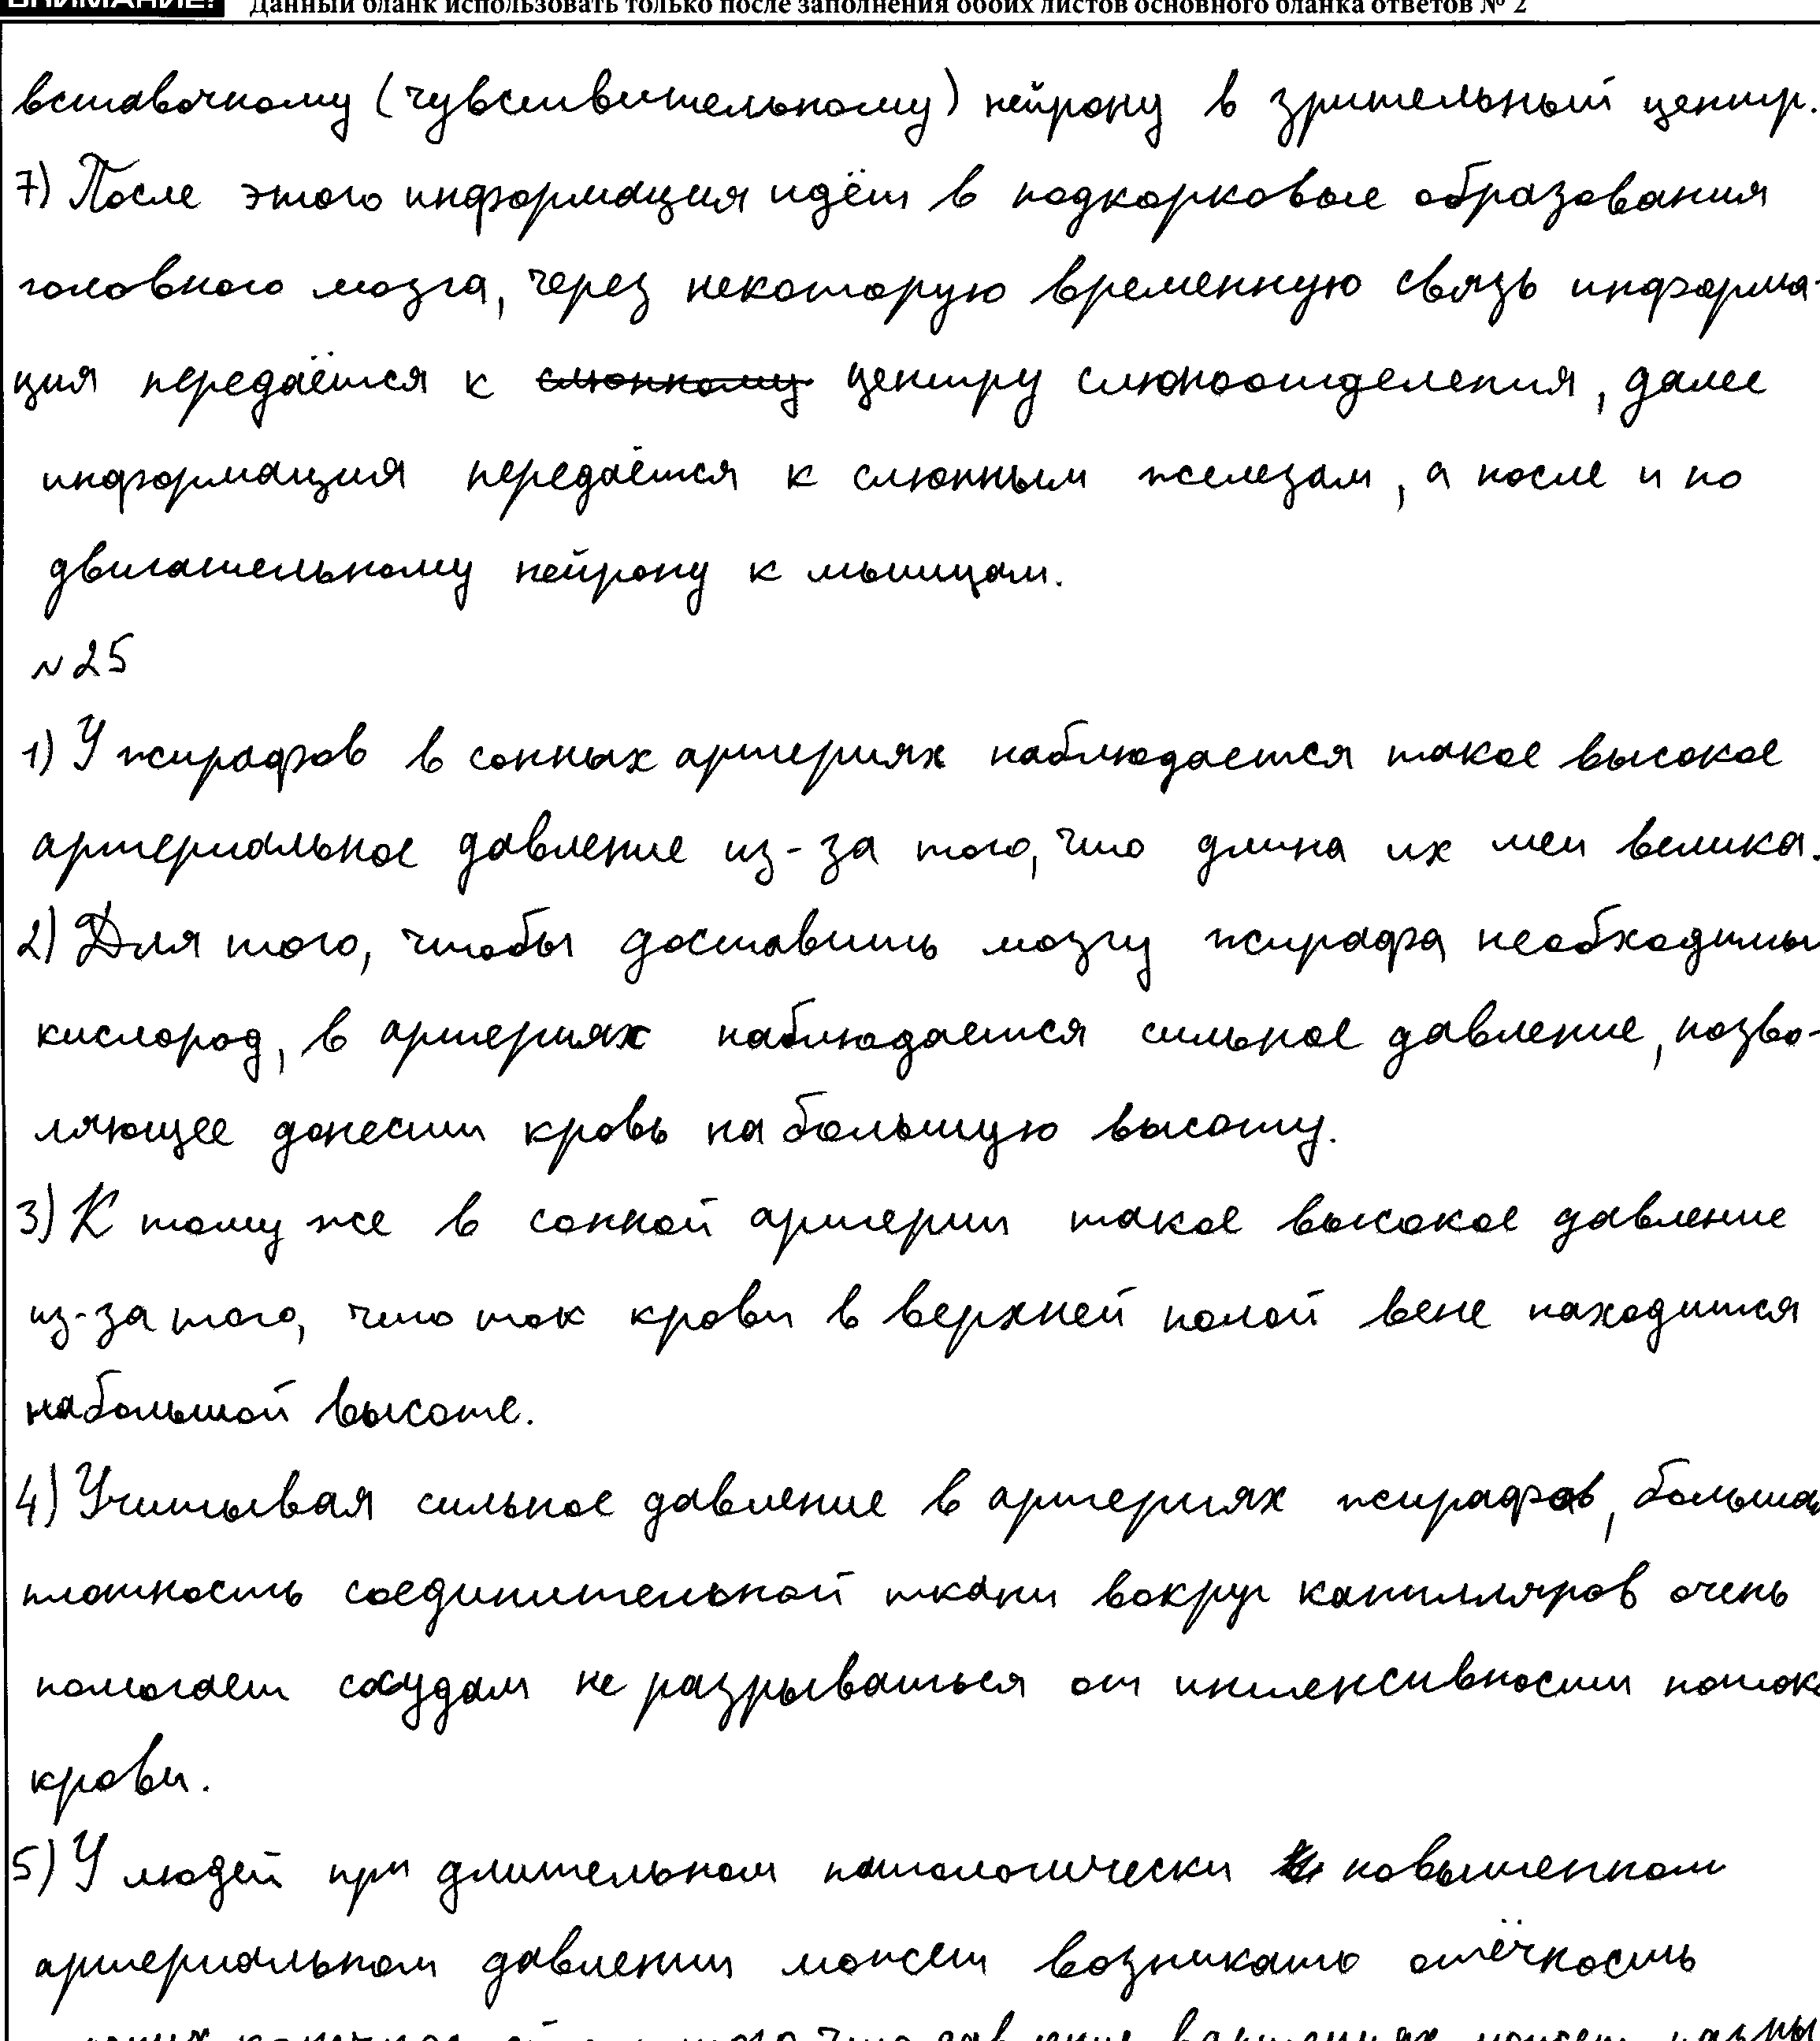 ВНИМАНИЕ! Данный бланк использовать только после заполнения обоих листов основного бланка ответов № 2
вставочному (чувствительному) нейрону в зрительный центр.
7) После этого информация идёт в подкорковые образования
головного мозга, через некоторую временную связь информа-
ция передаётся к слюнному центру слюноотделения, далее
информация передаётся к слюнным железам, а после и по
двигательному нейрону к мышцам.
№25
1) У жирафов в сонных артериях наблюдается такое высокое
артериальное давление из-за того, что длина их шеи велика.
2) Для того, чтобы доставить мозгу жирафа необходимы
кислород, в артериях наблюдается сильное давление, позво-
ляющее донести кровь на большую высоту.
3) К тому же в сонной артерии такое высокое давление
из-за того, что ток крови в верхней полой вене находится
на большой высоте.
4) Учитывая сильное давление в артериях жирафов, большая
плотность соединительной ткани вокруг капилляров очень
помогает сосудам не разрываться от интенсивности потока
крови.
5) У людей при длительном патологически повышенном
артериальном давлении может возникать отёчность